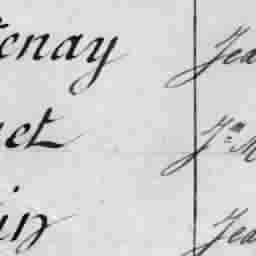 tenay Jea
et J.n M
in Jea